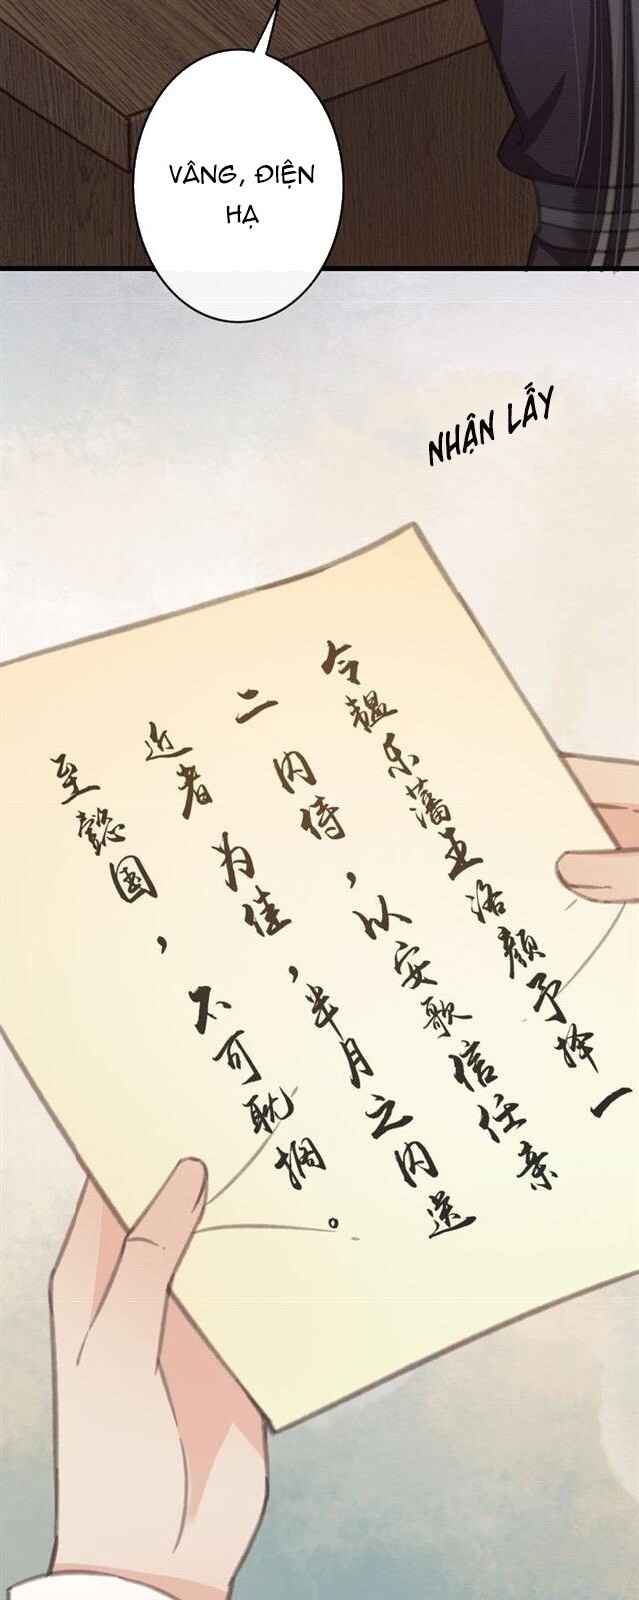 VÂNG, ĐIỆN
HẠ
NHẬN LẤY
令韫乐藩王洛颜予择一
二内侍，以安歌信任亲
近者为佳，半月之内送
至懿园，不可耽搁。